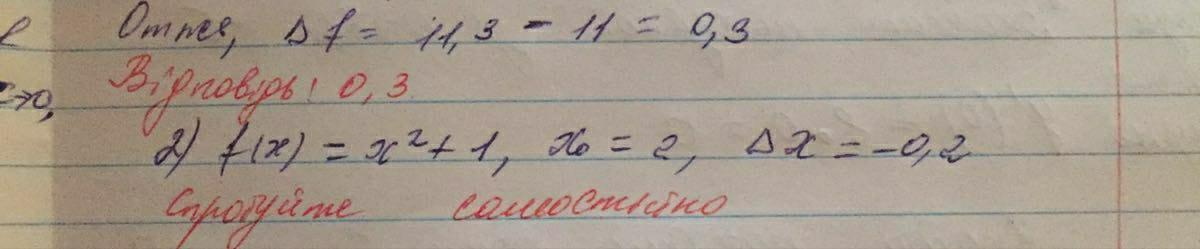 Отже, Δf = 11,3 - 11 = 0,3
Відповідь: 0,3
→0,
2) f(x) = x² + 1, x₀ = 2, Δx = -0,2
Спробуйте самостійно